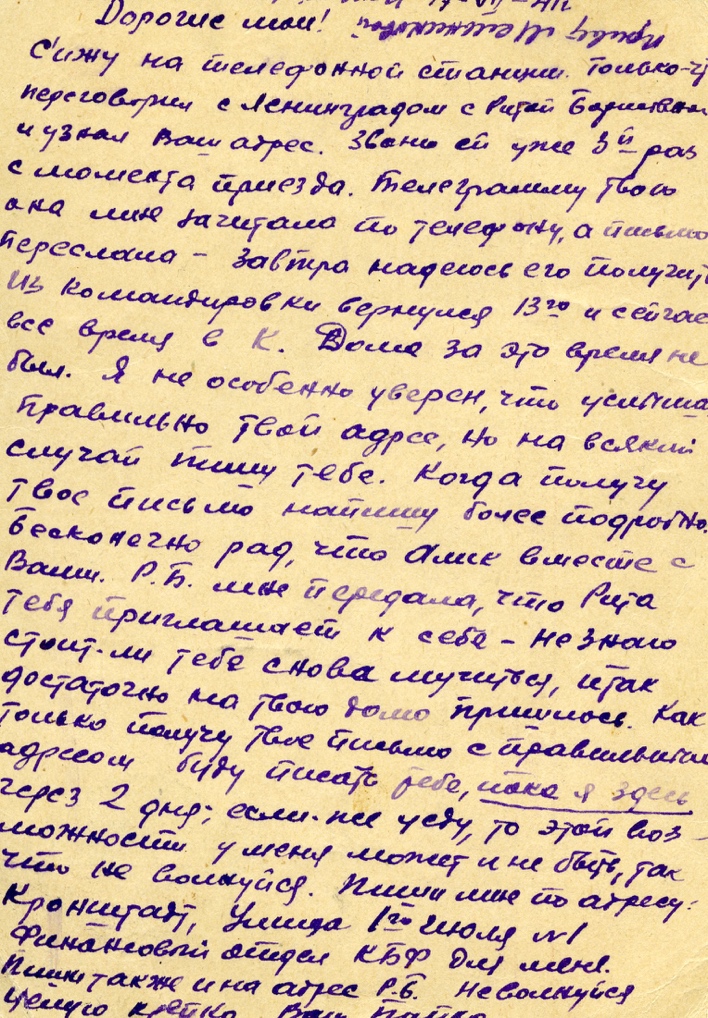 Дорогие мои!
Сижу на телефонной станции. Только-
переговорил с Ленинградом с Ритой
и узнал Ваш адрес. Звоню ей уже 3й раз
с момента приезда. Телеграмму твою
она мне зачитала по телефону, а письмо
переслала - завтра надеюсь его получить
Из командировки вернулся 13го и сейчас
все время в К. Дома за это время не
был. Я не особенно уверен, что услыша
правильно твой адрес, но на всякий
случай пишу тебе. Когда получу
твое письмо напишу более подробно.
Бесконечно рад, что Алик вместе с
Вами. Р.Б. мне передала, что Рита
тебя приглашает к себе - не знаю
стоит-ли тебе снова мучиться, итак
достаточно на твою долю пришлось. Как
только получу твое письмо с правильным
адресом буду писать тебе, пока я здесь
через 2 дня; если-же уеду, то этой воз-
можности у меня может и не быть, так
что не волнуйся. Пиши мне по адресу:
Кронштадт, Улица 1го Июля №1
Финансовый отдел КБФ для меня.
Пиши также и на адрес Р.Б. Не волнуйся
Целую крепко Ваш Папка